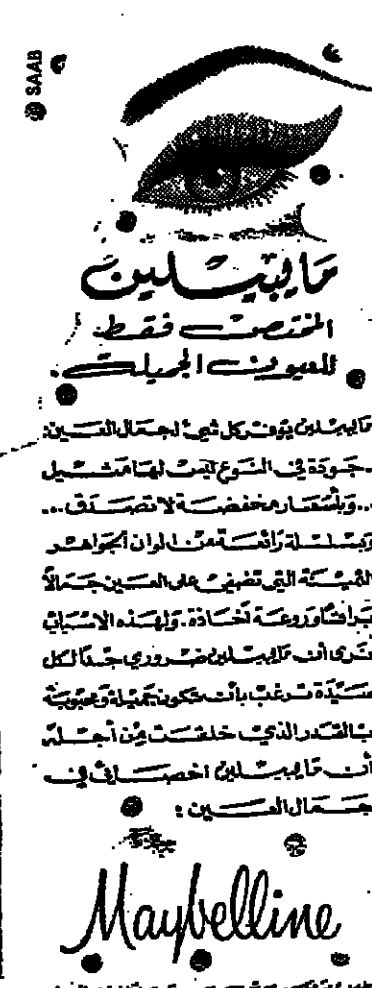 SAAB
مايبيلين
المختصّ فقط
للعيون الجميلة.
مايبيلين يوفر كل شيء لجمال العين:
.جودة في النوع ليس لها مثيل
..وبأسعار مخفضة لا تصدق...
وبسلسلة رائعة من الوان الجواهر
الثمينة التي تضفي على العين جمالاً
براقاً وروعة أخاذة. ولهذه الاسباب
نرى أن مايبيلين ضروري جداً لكل
سيّدة ترغب بأن تكون جميلة ومحبوبة
بالقدر الذي خلقت من أجله
أن مايبيلين اخصائي في
جمال العين:
Maybelline